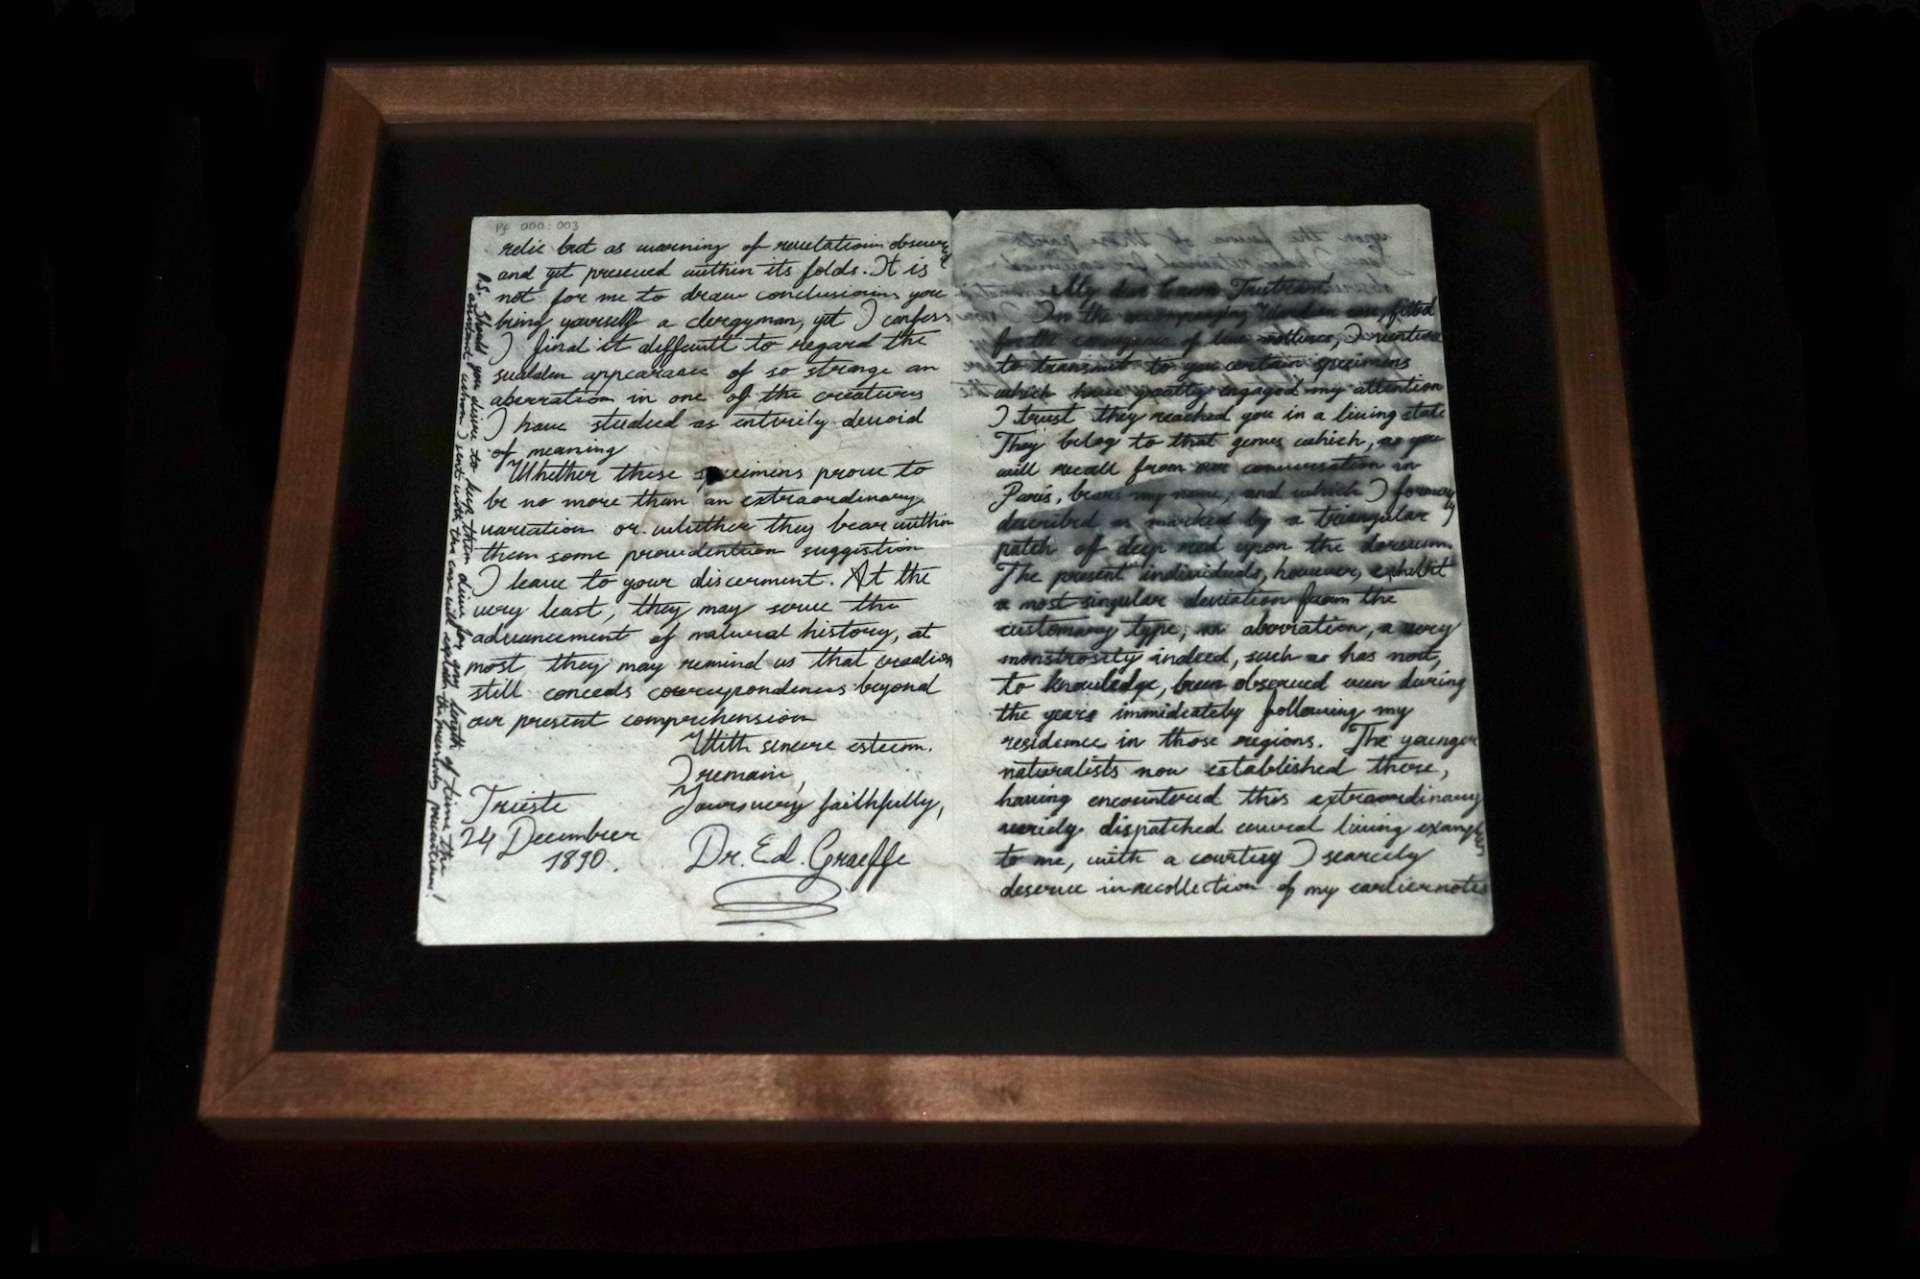 Pf 000:003
relic but as warning of revelation obscured
and yet preserved within its folds. It is
not for me to draw conclusions you
being yourself a clergyman, yet I confess
I find it difficult to regard the
sudden appearance of so strange an
aberration in one of the creatures
I have studied as entirely devoid
of meaning
Whether these specimens prove to
be no more than an extraordinary
variation or whether they bear within
them some providention suggestion
I leave to your discernment. At the
very least, they may serve the
advancement of natural history, at
most they may remind us that creation
still conceds correspondences beyond
our present comprehension
With sincere esteem.
I remain,
Yours very faithfully,
Dr. Ed. Graeffe
Trieste
24 December
1890.
P.S. Should you desire to keep them alive for any length of time the
assistant whom I sent with the case will explain the necessary precautions!
My dear Canon Tristram
In the accompanying Wardian case, fitted
for the conveyance of live molluscs, I venture
to transmit to you certain specimens
which have greatly engaged my attention
I trust they reached you in a living state
They belog to that genus which, as you
will recall from our conversation in
Paris, bears my name, and which I formerly
described as marked by a triangular
patch of deep red upon the dorsum.
The present individuals, however, exhibit
a most singular deviation from the
customary type; an aborration, a very
monstrosity indeed, such as has not,
to knowledge, been observed even during
the years immideately following my
residence in those regions. The younger
naturalists now established there,
having encountered this extraordinary
variety dispatched several living examples
to me, with a courtesy I scarcely
deserve in recollection of my earlier notes